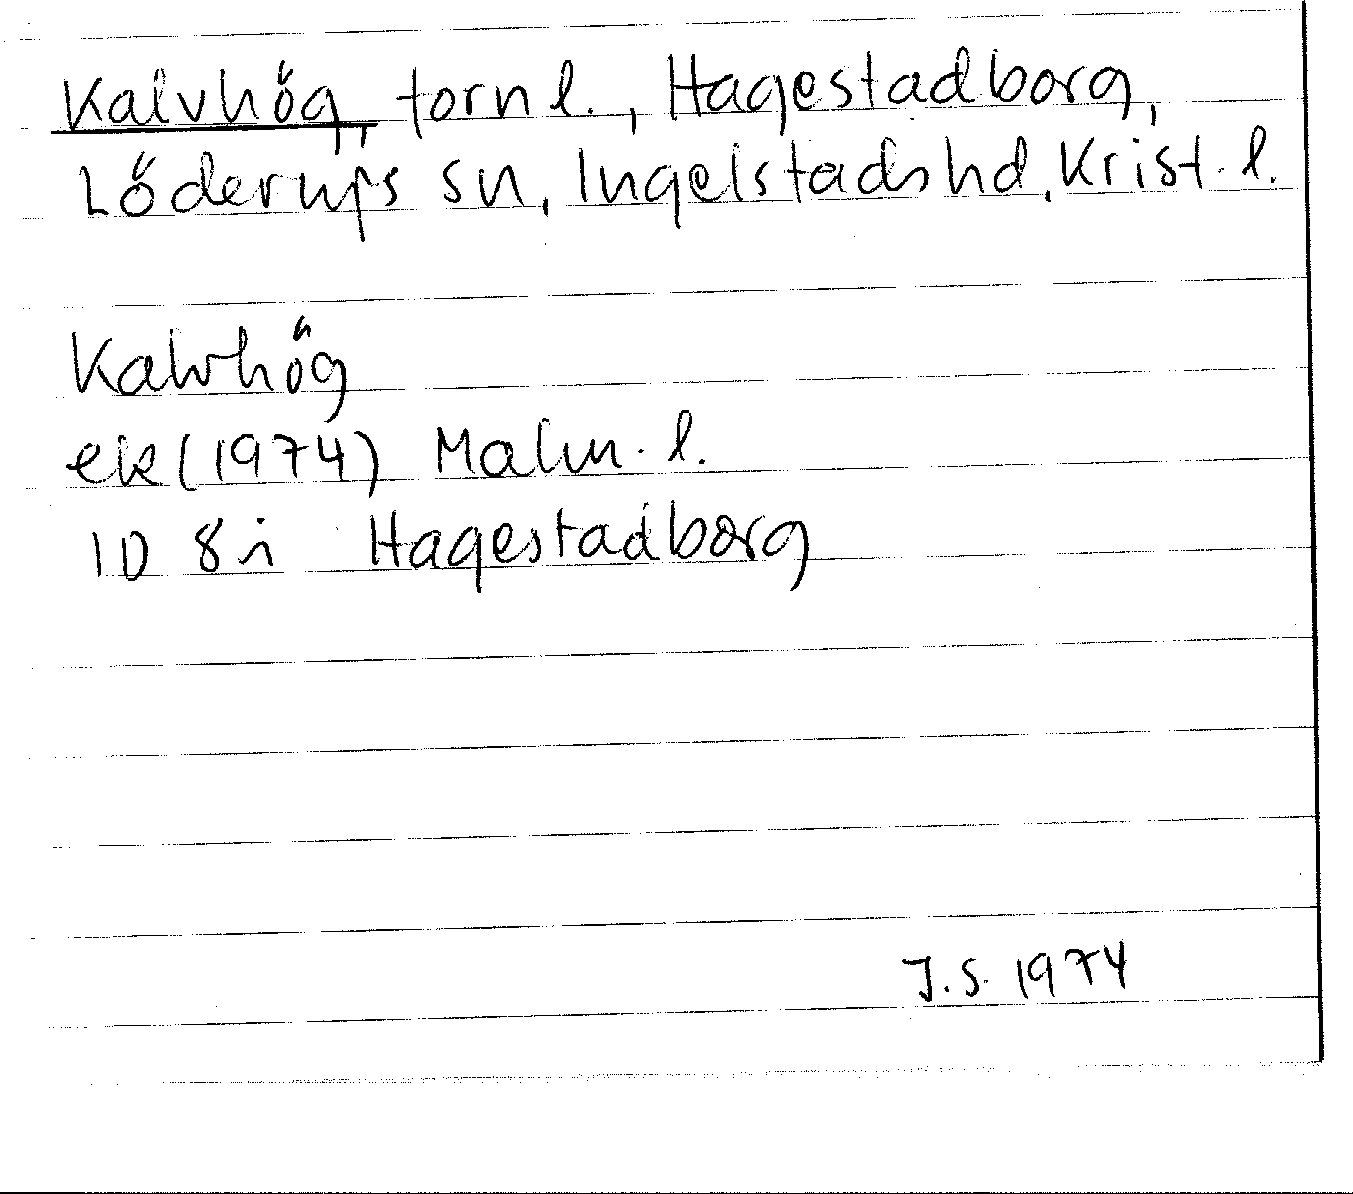 Kalvhög, torn l., Hagestadborg,
Löderups sn, Ingelstads hd, Krist. l.
Kalvhög
ek (1974) Malm. l.
1D 8i Hagestadborg
J.S. 1974